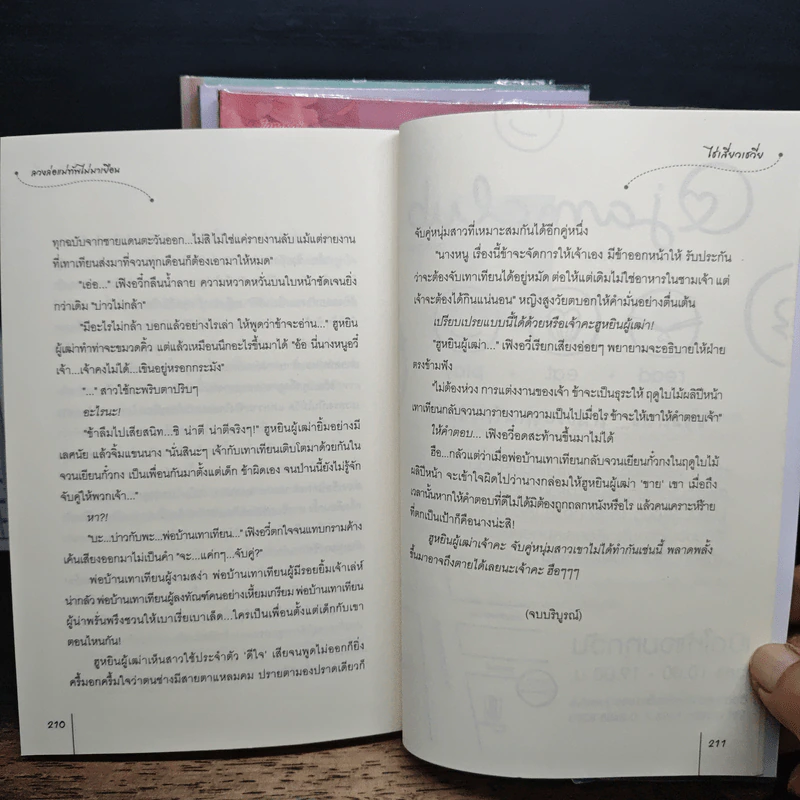 ลวงล่อแม่ทัพไม่มาเยือน
ทุกฉบับจากชายแดนตะวันออก...ไม่สิ ไม่ใช่แค่รายงานลับ แม้แต่รายงาน
ที่เทาเทียนส่งมาที่จวนทุกเดือนก็ต้องเอามาให้หมด"
"เอ่อ..." เฟิงอวี้กลืนน้ำลาย ความหวาดหวั่นบนใบหน้าชัดเจนยิ่ง
กว่าเดิม "บ่าวไม่กล้า"
"มีอะไรไม่กล้า บอกแล้วอย่างไรเล่า ให้พูดว่าข้าจะอ่าน..." ฮูหยิน
ผู้เฒ่าทำท่าจะขมวดคิ้ว แต่แล้วเหมือนนึกอะไรขึ้นมาได้ "อ้อ นี่นางหนูอวี้
เจ้า...เจ้าคงไม่ได้...เขินอยู่หรอกกระมัง"
"..." สาวใช้กะพริบตาปริบๆ
อะไรนะ!
"ข้าลืมไปเสียสนิท...ชิ น่าตี น่าตีจริงๆ!" ฮูหยินผู้เฒ่ายิ้มอย่างมี
เลศนัย แล้วจิ้มแขนนาง "นั่นสินะๆ เจ้ากับเทาเทียนเติบโตมาด้วยกันใน
จวนเยียนกั๋วกง เป็นเพื่อนกันมาตั้งแต่เด็ก ข้าผิดเอง จนป่านนี้ยังไม่รู้จัก
จับคู่ให้พวกเจ้า..."
หา?!
"บะ...บ่าวกับพะ...พ่อบ้านเทาเทียน..." เฟิงอวี้ตกใจจนแทบกรามค้าง
เค้นเสียงออกมาไม่เป็นคำ "จะ...แค่กๆ...จับคู่?"
พ่อบ้านเทาเทียนผู้งามสง่า พ่อบ้านเทาเทียนผู้มีรอยยิ้มเจ้าเล่ห์
น่ากลัว พ่อบ้านเทาเทียนผู้ลงทัณฑ์คนอย่างเหี้ยมเกรียม พ่อบ้านเทาเทียน
ผู้น่าพรั่นพรึงชวนให้เบาเรี่ยเบาเล็ด...ใครเป็นเพื่อนตั้งแต่เด็กกับเขา
ตอนไหนกัน!
ฮูหยินผู้เฒ่าเห็นสาวใช้ประจำตัว 'ดีใจ' เสียจนพูดไม่ออกก็ยิ่ง
ครึ้มอกครึ้มใจว่าตนช่างมีสายตาแหลมคม ปรายตามองปราดเดียวก็
210
ไช่เสี่ยวเชวี่ย
จับคู่หนุ่มสาวที่เหมาะสมกันได้อีกคู่หนึ่ง
"นางหนู เรื่องนี้ข้าจะจัดการให้เจ้าเอง มีข้าออกหน้าให้ รับประกัน
ว่าจะต้องจับเทาเทียนได้อยู่หมัด ต่อให้แต่เดิมไม่ใช่อาหารในชามเจ้า แต่
เจ้าจะต้องได้กินแน่นอน" หญิงสูงวัยตบอกให้คำมั่นอย่างตื่นเต้น
เปรียบเปรยแบบนี้ได้ด้วยหรือเจ้าคะฮูหยินผู้เฒ่า!
"ฮูหยินผู้เฒ่า..." เฟิงอวี้เรียกเสียงอ่อยๆ พยายามจะอธิบายให้ฝ่าย
ตรงข้ามฟัง
"ไม่ต้องห่วง การแต่งงานของเจ้า ข้าจะเป็นธุระให้ ฤดูใบไม้ผลิปีหน้า
เทาเทียนกลับจวนมารายงานความเป็นไปเมื่อไร ข้าจะให้เขาให้คำตอบเจ้า"
ให้คำตอบ... เฟิงอวี้อดสะท้านขึ้นมาไม่ได้
ฮือ...กลัวแต่ว่าเมื่อพ่อบ้านเทาเทียนกลับจวนเยียนกั๋วกงในฤดูใบไม้
ผลิปีหน้า จะเข้าใจผิดไปว่านางกล่อมให้ฮูหยินผู้เฒ่า 'ขาย' เขา เมื่อถึง
เวลานั้นหากให้คำตอบที่ดีไม่ได้มิต้องถูกถลกหนังหรือไร แล้วคนเคราะห์ร้าย
ที่ตกเป็นเป้าก็คือนางน่ะสิ!
ฮูหยินผู้เฒ่าเจ้าคะ จับคู่หนุ่มสาวเขาไม่ได้ทำกันเช่นนี้ พลาดพลั้ง
ขึ้นมาอาจถึงตายได้เลยนะเจ้าคะ ฮือๆๆๆ
(จบบริบูรณ์)
211